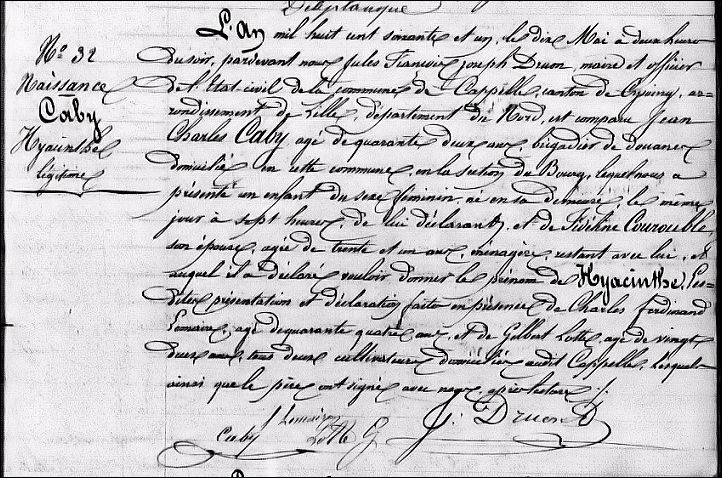 Delplanque
N° 32
Naissance
Caby
Hyacinthe
légitime
L'An mil huit cent soixante et un, le dix Mai à deux heures
du soir, pardevant nous Jules François Joseph Druon, maire et officier
de l'Etat-civil de la commune de Cappelle, canton de Cysoing, ar-
rondissement de Lille, département du Nord, est comparu Jean
Charles Caby, agé de quarante deux ans, brigadier de douanes
domicilié en cette commune, en la section du Bourg, lequel nous a
présenté un enfant du sexe féminin, né en sa demeure, le même
jour à sept heures, de lui déclarant, et de Fidéline Courouble
son épouse, agée de trente et un ans, ménagère, restant avec lui, et
auquel il a déclaré vouloir donner le prénom de Hyacinthe. Les-
dites présentation et déclaration faites en présence de Charles Ferdinand
Lemaire, agé de quarante quatre ans, et de Gilbert Lotte, agé de vingt
deux ans, tous deux cultivateurs domiciliés audit Cappelle, lesquels
ainsi que le père ont signé avec nous, après lecture ./.
Caby
J Lemaire
Lotte G
J. Druon